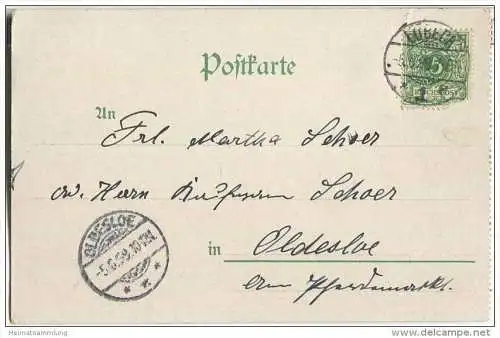 LÜBECK
5
Postkarte
An
Frl. Martha Schoer
Herrn Kaufmann Schoer
in Oldesloe
Am Pferdemarkt.
OLDESLOE
-5.6.98.10-11N.
Heimatsammlung
delcampe.net